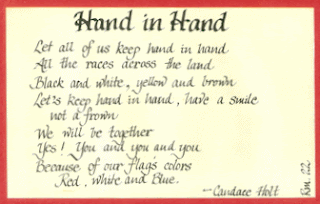 Hand in Hand
Let all of us keep hand in hand
All the races across the land
Black and white, yellow and brown
Let's keep hand in hand, have a smile
not a frown
We will be together
Yes! You and you and you
Because of our flag's colors
Red, white and Blue.
—Candace Holt
Rm. 122